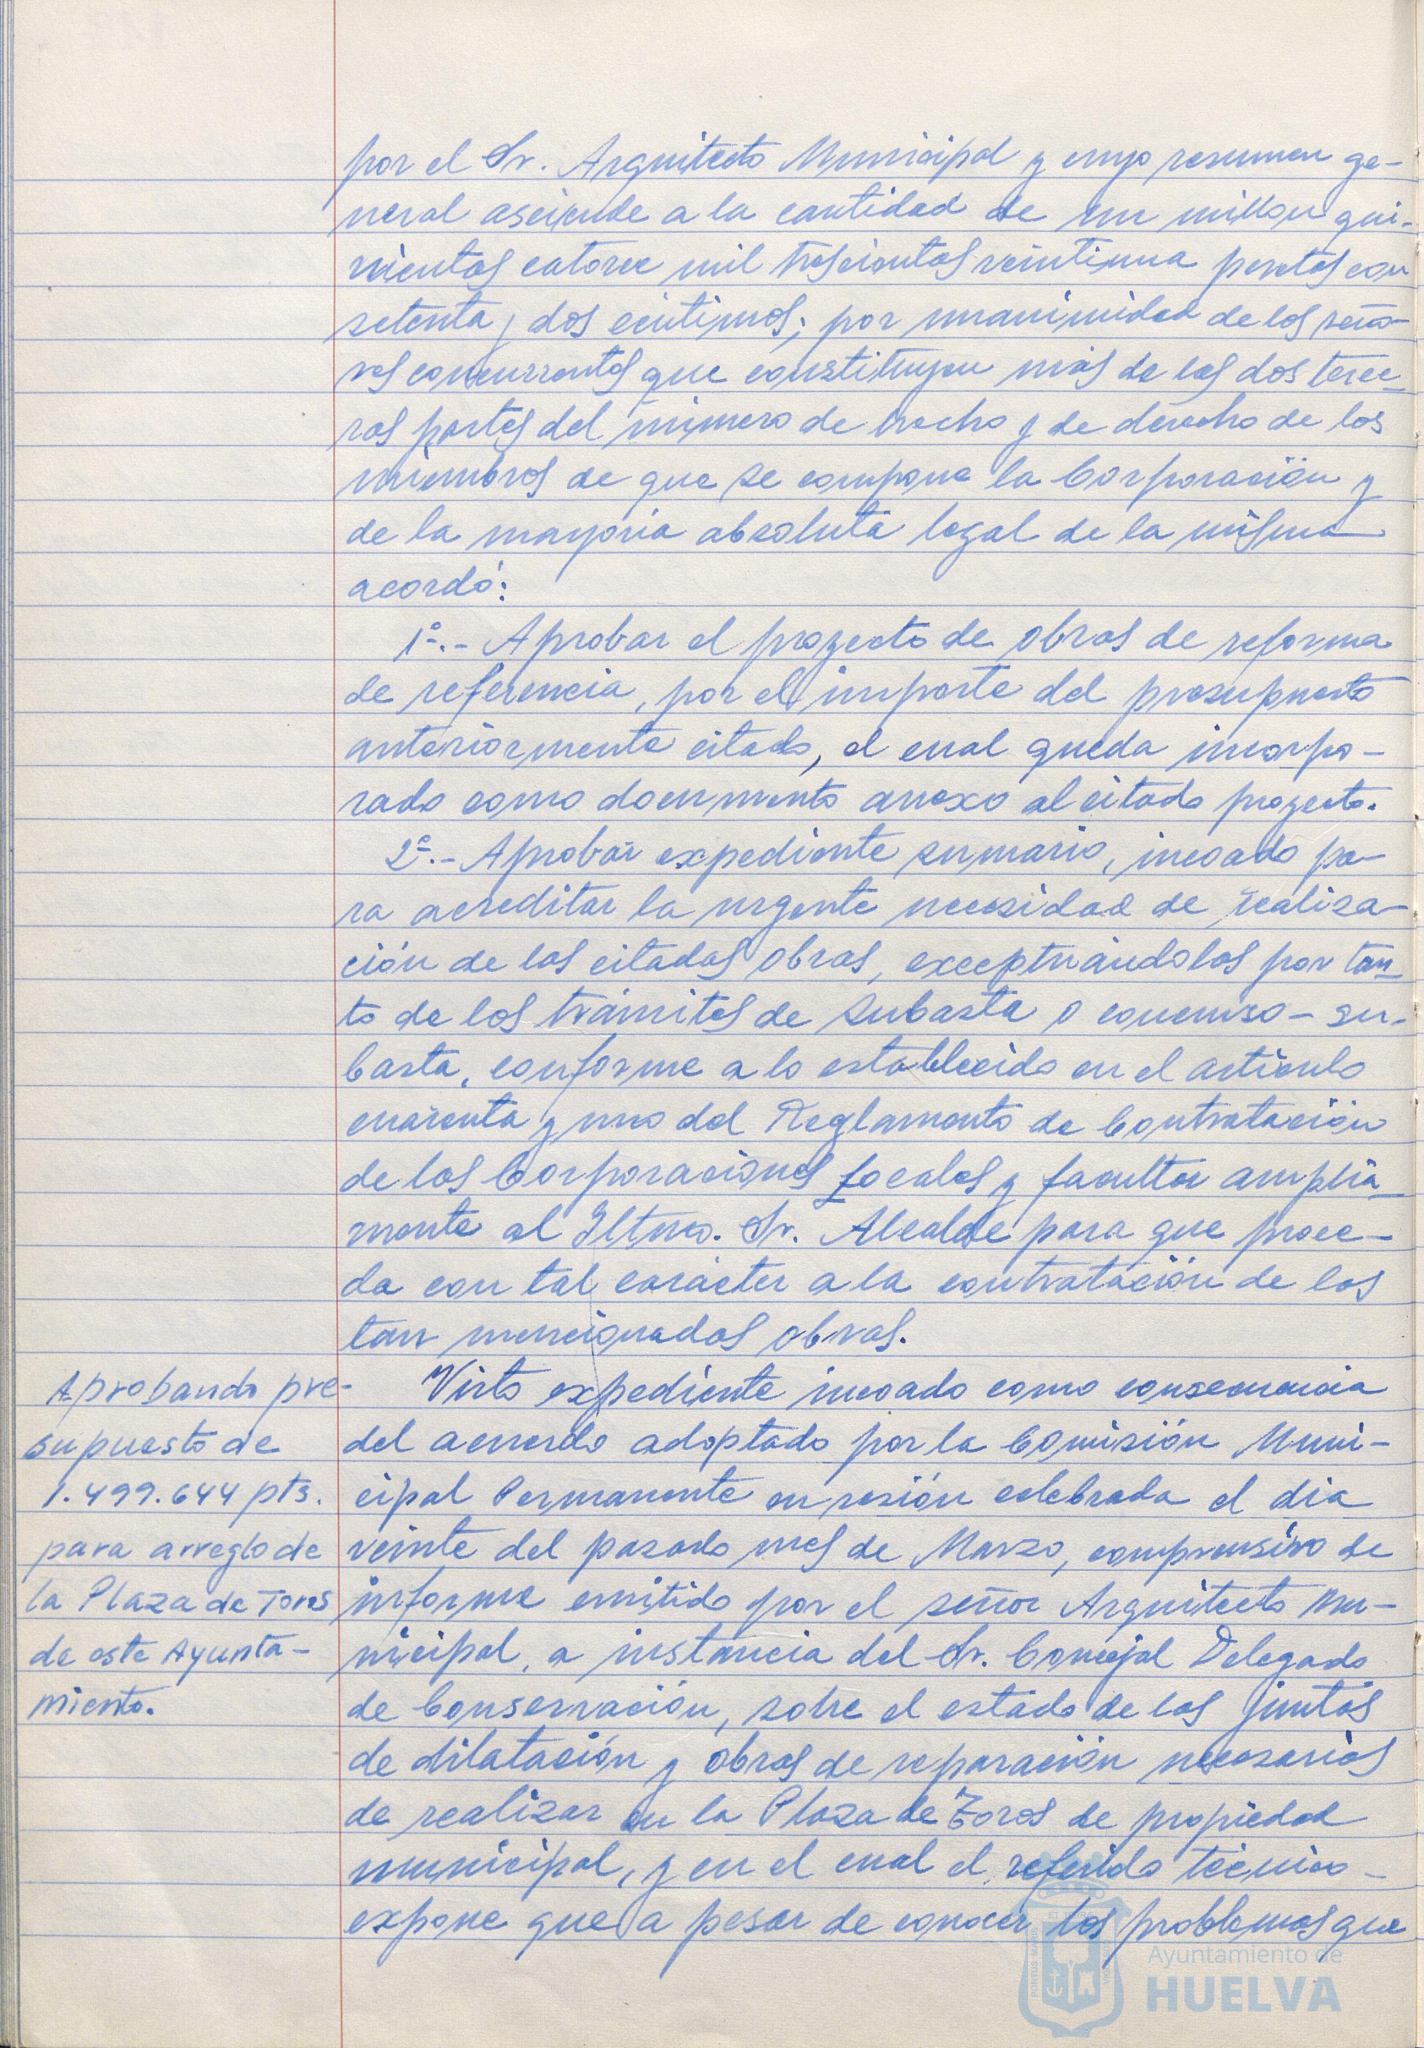 por el Sr. Arquitecto Municipal y cuyo resumen ge-
neral asciende a la cantidad de un millon qui-
nientas catorce mil trescientas veintiuna pesetas con
setenta y dos céntimos; por unanimidad de los seño-
res concurrentes que constituyen más de las dos terce-
ras partes del número de hecho y de derecho de los
miembros de que se compone la Corporación y
de la mayoria absoluta legal de la misma
acordó:
1º.- Aprobar el proyecto de obras de reforma
de referencia, por el importe del presupuesto
anteriormente citado, el cual queda incorpo-
rado como documento anexo al citado proyecto.
2º.- Aprobar expediente sumario, incoado pa-
ra acreditar la urgente necesidad de realiza-
ción de las citadas obras, exceptuándolas por tan-
to de los trámites de subasta o concurso-su-
basta, conforme a lo establecido en el articulo
cuarenta y uno del Reglamento de Contratación
de las Corporaciones Locales y facultar amplia-
mente al Iltmo. Sr. Alcalde para que proce-
da con tal carácter a la contratación de las
tan mencionadas obras.
Aprobando pre-
supuesto de
1.499.644 pts.
para arreglo de
la Plaza de Toros
de este Ayunta-
miento.
Visto expediente incoado como consecuencia
del acuerdo adoptado por la Comisión Muni-
cipal Permanente en sesión celebrada el dia
veinte del pasado mes de Marzo, comprensivo de
informe emitido por el señor Arquitecto Mu-
nicipal, a instancia del Sr. Concejal Delegado
de Conservación, sobre el estado de las juntas
de dilatación y obras de reparación necesarias
de realizar en la Plaza de Toros de propiedad
municipal, y en el cual el referido técnico
expone que a pesar de conocer los problemas que
Ayuntamiento de
HUELVA